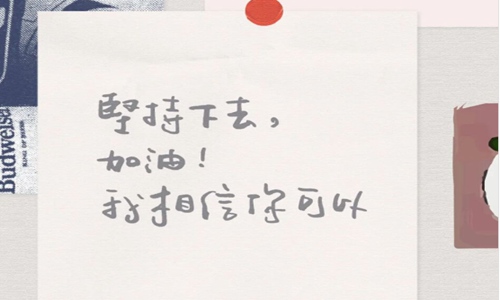 堅持下去，
加油！
我相信你可以
Budweiser
KING OF BEERS